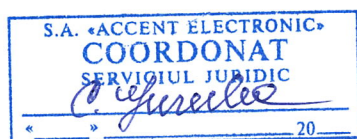 S.A. «ACCENT ELECTRONIC»
COORDONAT
SERVICIUL JURIDIC
« » 20